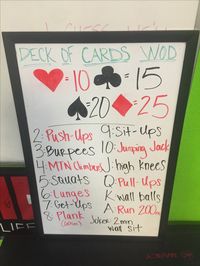 DECK OF CARDS WOD
♥=10 ♣=15
♠=20 ♦=25
2: Push-Ups 9: Sit-Ups
3: Burpees 10: Jumping Jack
4: MTN Climbers J: high knees
5: Squats Q: Pull-Ups
6: Lunges K: wall balls
7: Get-Ups A: Run 200m
8: Plank Joker: 2 min
wall sit
LIFE